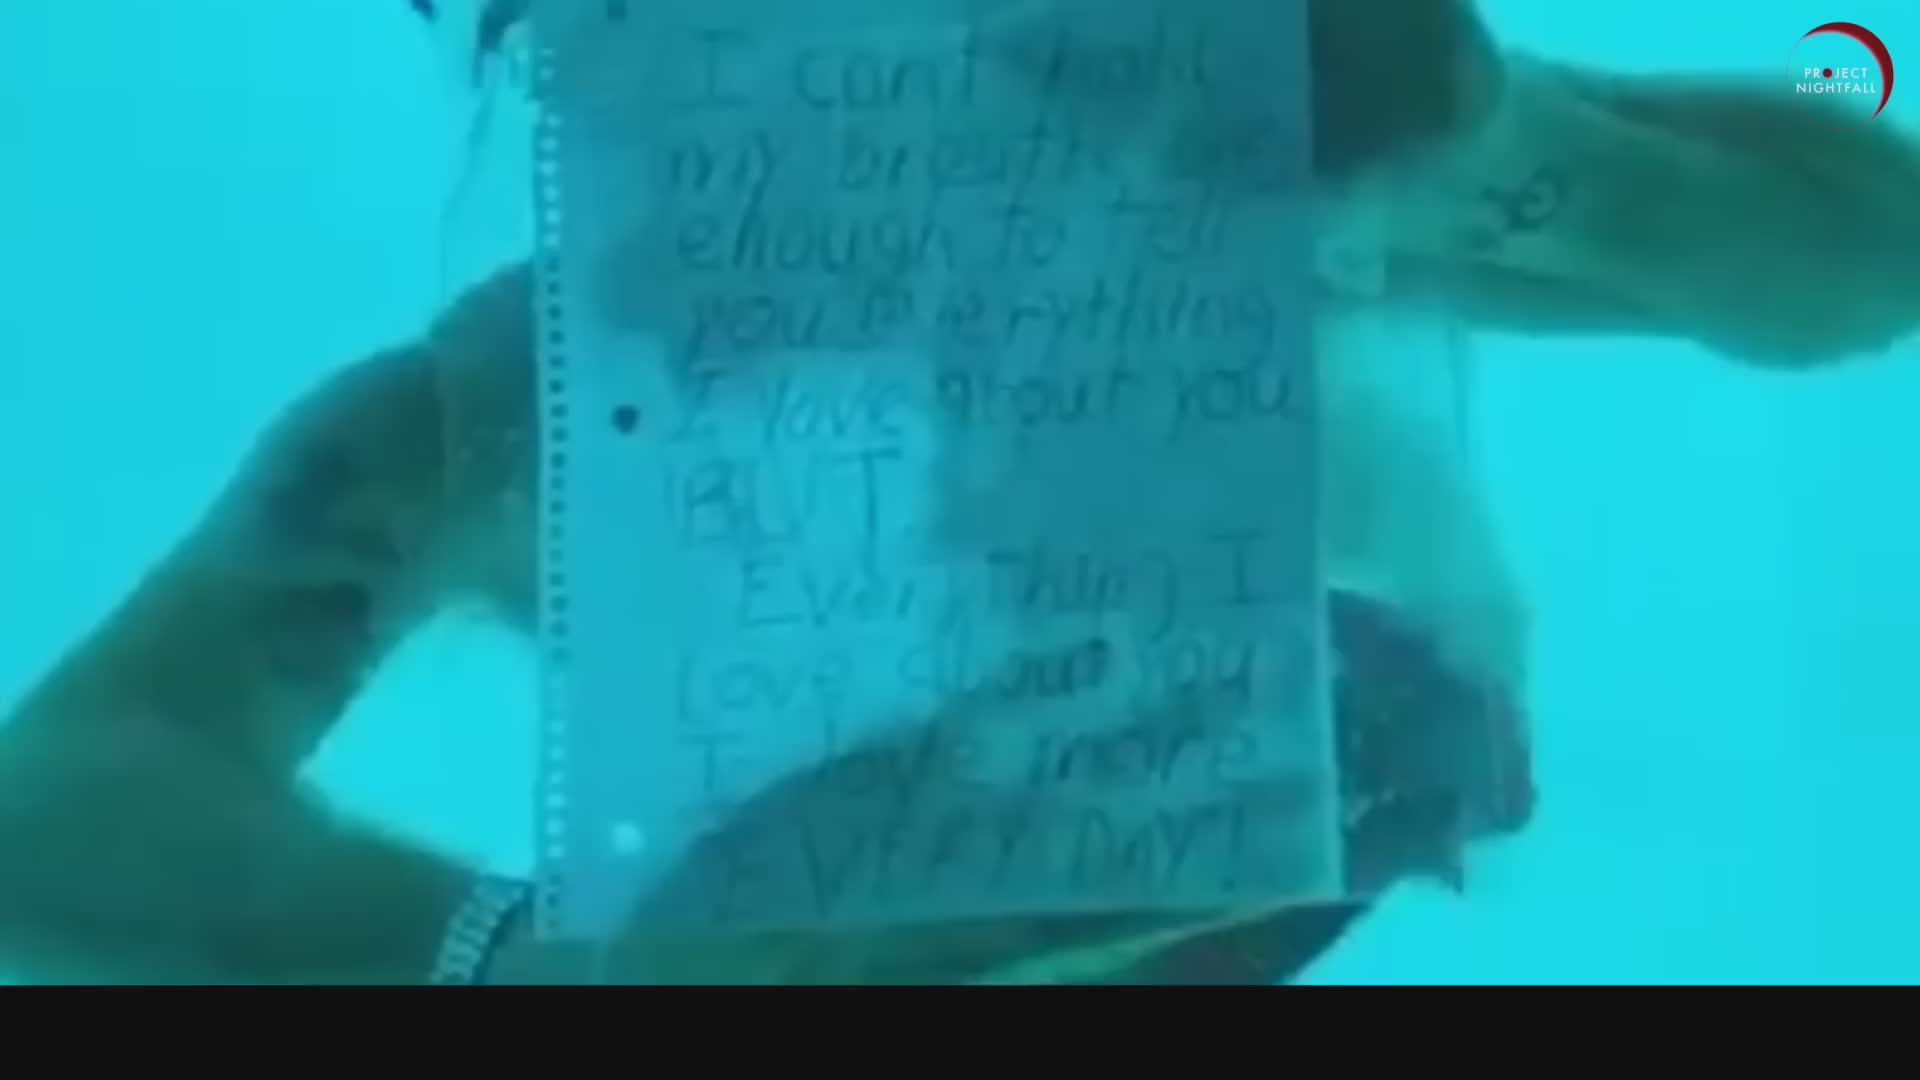 I can't hold
my breath
enough to tell
you everything
I love about you
BUT
Everything I
Love about you
I love more
EVERY DAY!
PROJECT
NIGHTFALL